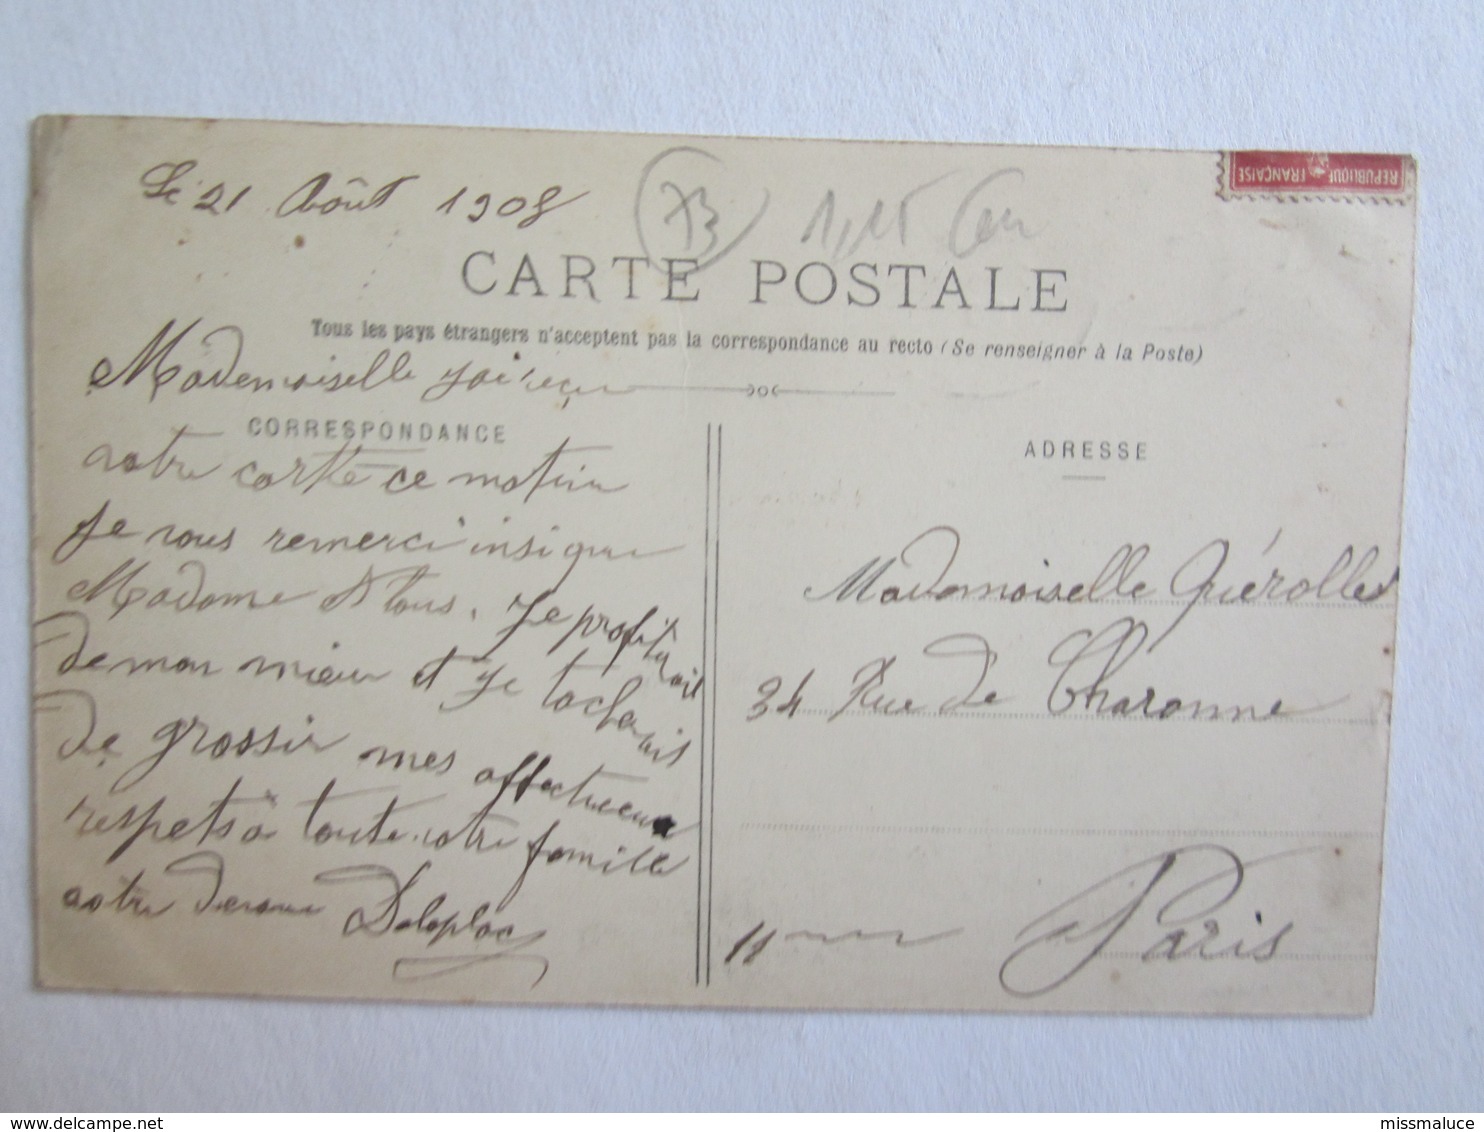 Le 21 Août 1908
73
REPUBLIQUE FRANÇAISE
CARTE POSTALE
Tous les pays étrangers n'acceptent pas la correspondance au recto (Se renseigner à la Poste)
CORRESPONDANCE
Mademoiselle j'ai reçu
votre carte ce matin
Je vous remerci insi que
Madame et tous. Je profiterait
de mon mieu et je tacherais
de grossir mes affectueux
respets à toute votre famille
votre Delaplac
ADRESSE
Mademoiselle Guérolles
34 Rue de Charonne
Paris
11me
delcampe.net
missmaluce